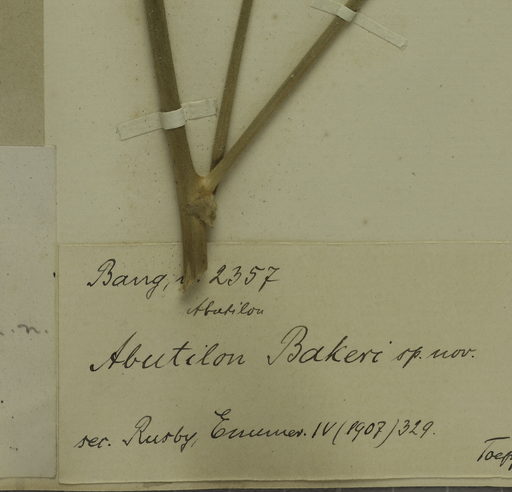 Bang, n. 2357
Abutilon
Abutilon Bakeri sp. nov.
sec. Rusby, Enumer. IV (1907) 329.
n.